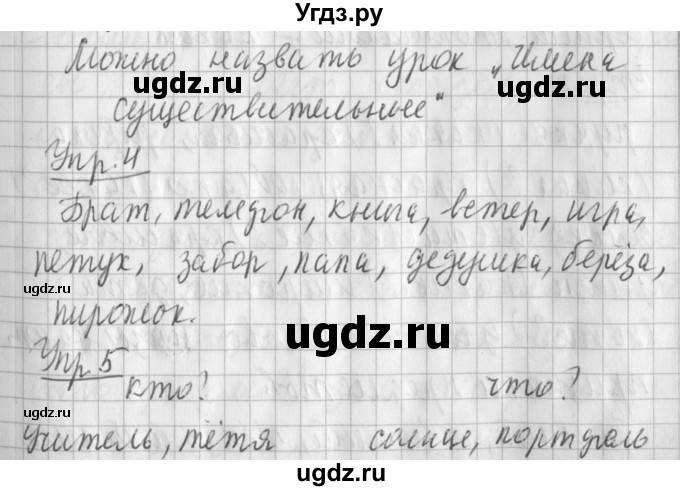 Угдз.ру
Можно назвать урок „Имена
ugdz.ru ugdz.ru
существительные“
Упр. 4
Брат, телефон, книга, ветер, игра,
петух, забор, папа, дедушка, берёза,
ugdz.ru
пирожок.
ugdz.ru
Упр. 5
кто? что?
ugdz.ru
учитель, тётя солнце, портфель
ugdz.ru